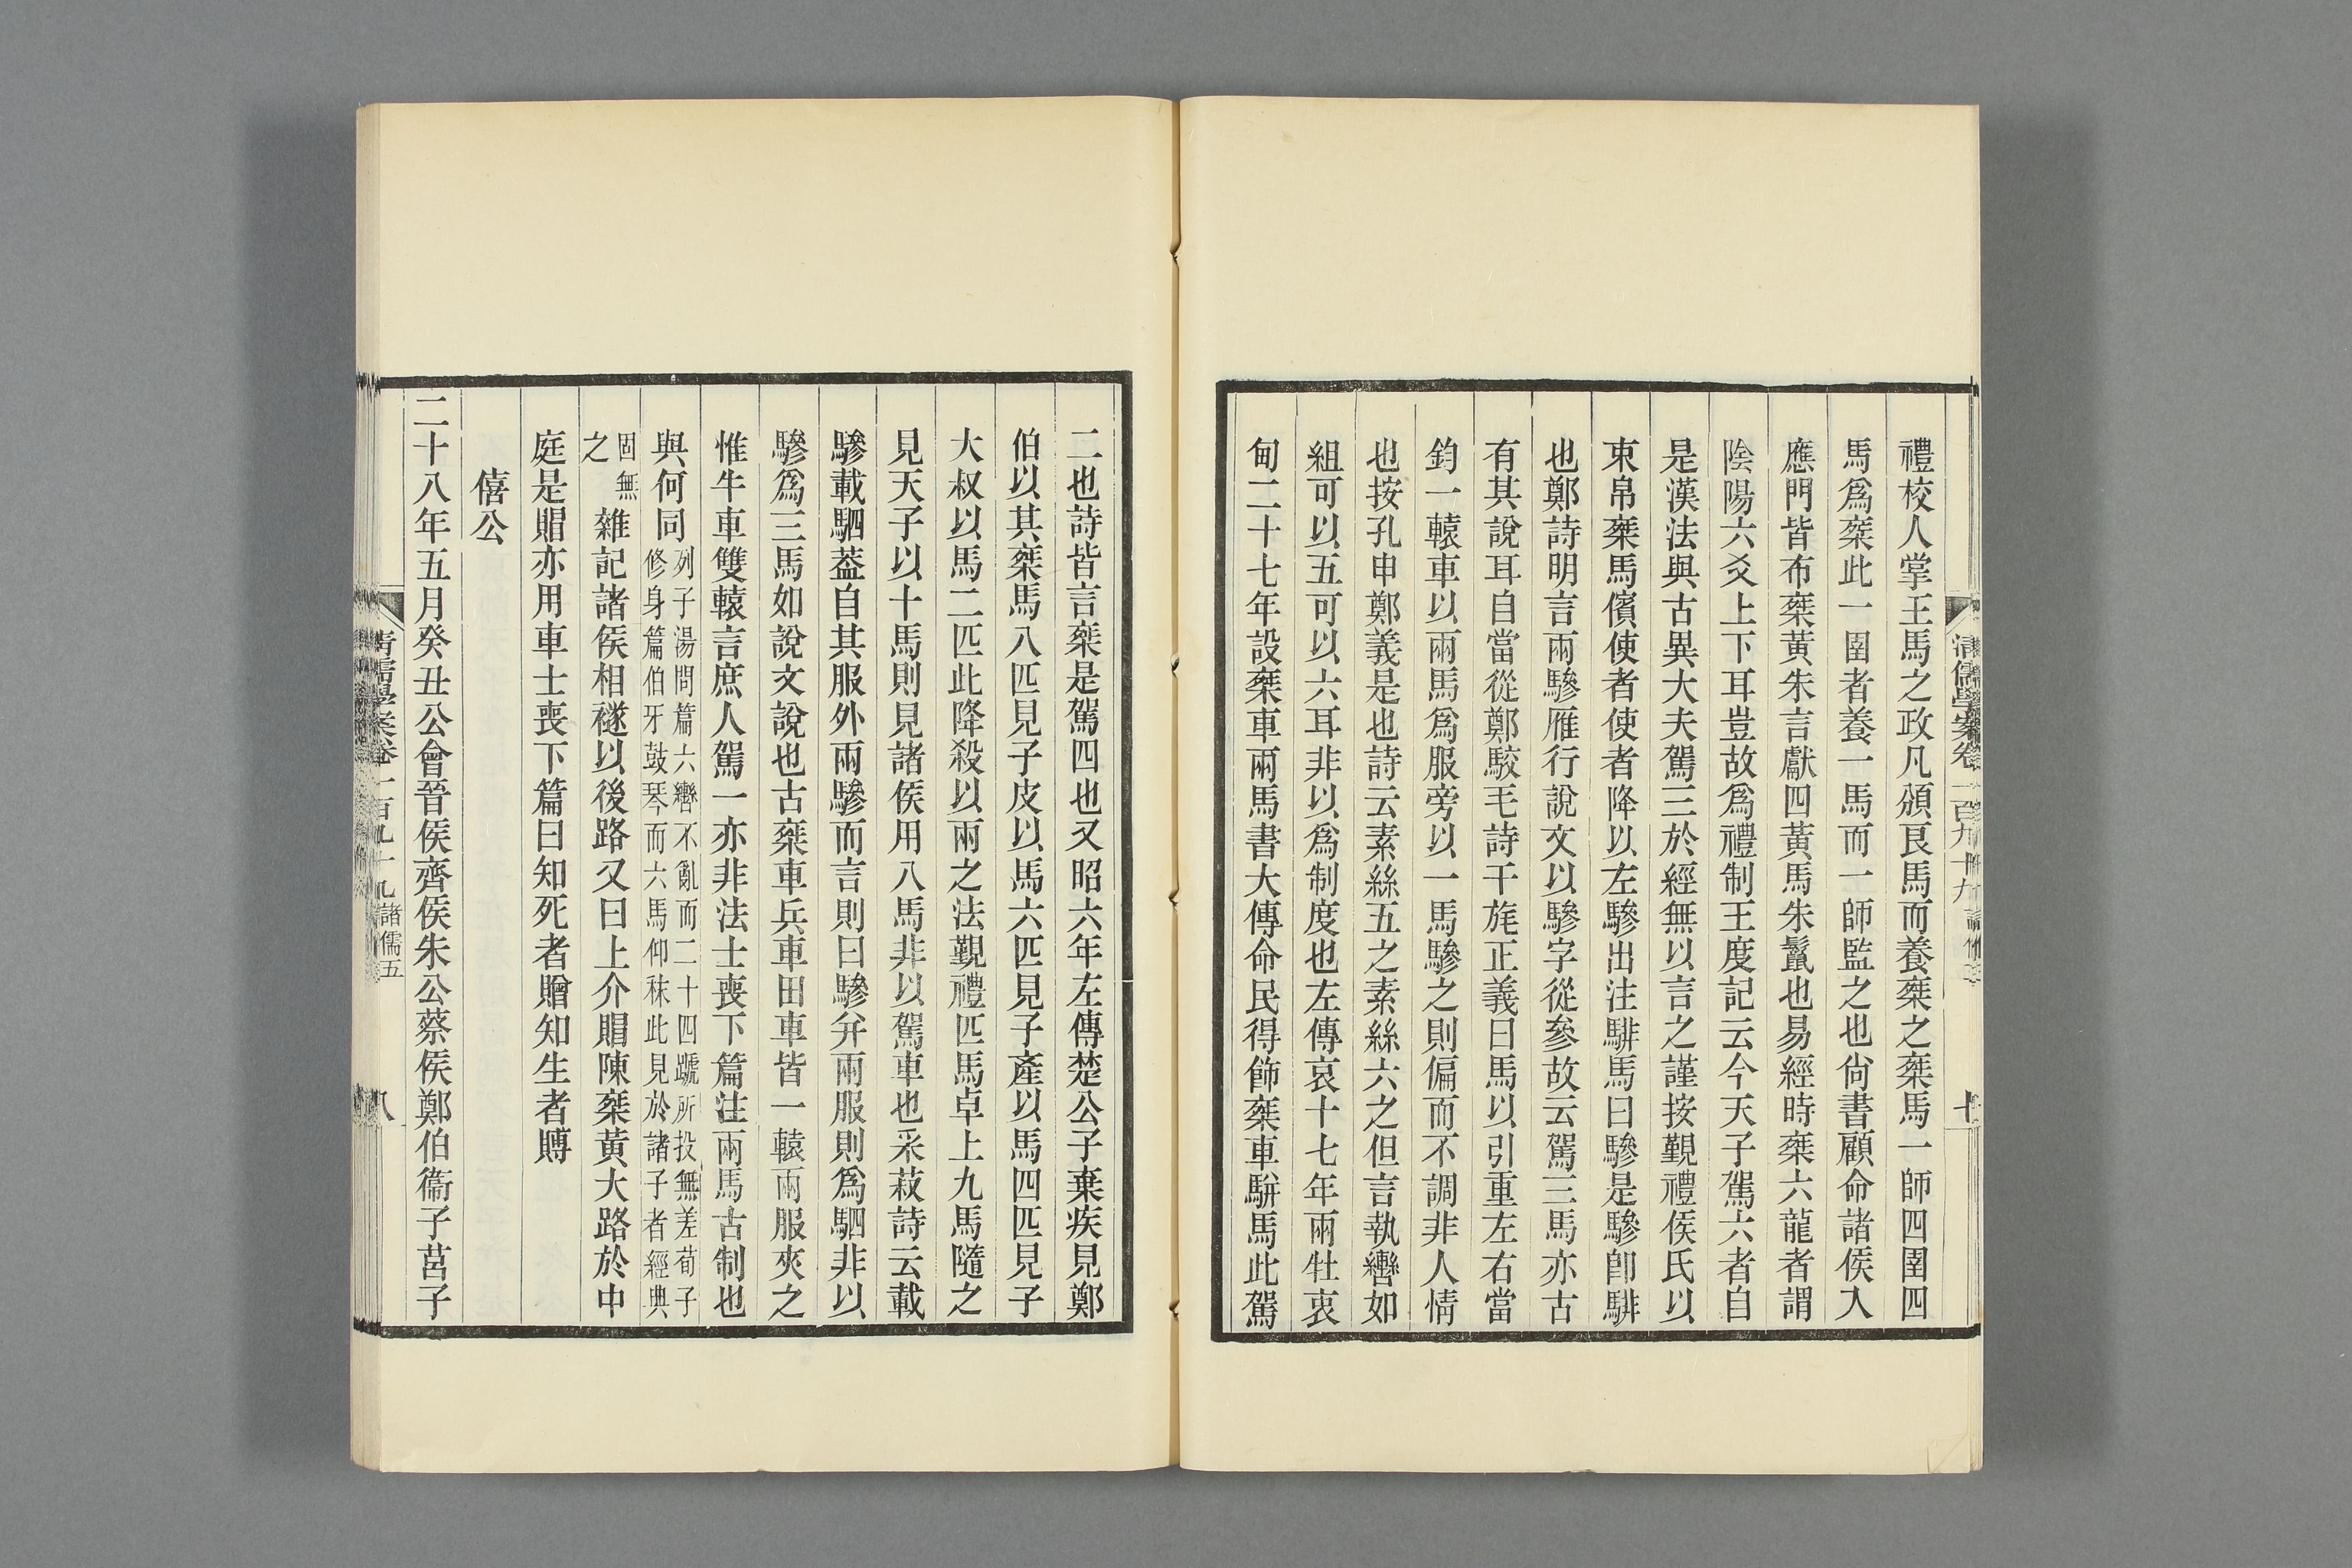 清儒學案卷一百九十九
禮校人掌王馬之政凡頒良馬而養椉之椉馬一師四圉四
馬爲椉此一圉者養一馬而一師監之也尙書顧命諸侯入
應門皆布椉黃朱言獻四黃馬朱鬣也易經時椉六龍者謂
陰陽六爻上下耳豈故爲禮制王度記云今天子駕六者自
是漢法與古異大夫駕三於經無以言之謹按覲禮侯氏以
束帛椉馬儐使者使者降以左驂出注騑馬曰驂是驂卽騑
也鄭詩明言兩驂雁行說文以驂字從參故云駕三馬亦古
有其說耳自當從鄭駮毛詩干旄正義曰馬以引重左右當
鈞一轅車以兩馬爲服旁以一馬驂之則偏而不調非人情
也按孔申鄭義是也詩云素絲五之素絲六之但言執轡如
組可以五可以六耳非以爲制度也左傳哀十七年兩牡衷
甸二十七年設椉車兩馬書大傳命民得飾椉車騈馬此駕
二也詩皆言椉是駕四也又昭六年左傳楚公子棄疾見鄭
伯以其椉馬八匹見子皮以馬六匹見子產以馬四匹見子
大叔以馬二匹此降殺以兩之法覲禮匹馬卓上九馬隨之
見天子以十馬則見諸侯用八馬非以駕車也采菽詩云載
驂載駟葢自其服外兩驂而言則曰驂幷兩服則爲駟非以
驂爲三馬如說文說也古椉車兵車田車皆一轅兩服夾之
惟牛車雙轅言庶人駕一亦非法士喪下篇注兩馬古制也
與何同列子湯問篇六轡不亂而二十四蹏所投無差荀子
修身篇伯牙鼓琴而六馬仰秣此見於諸子者經典
固無
之雜記諸侯相襚以後路又曰上介賵陳椉黃大路於中
庭是賵亦用車士喪下篇曰知死者贈知生者賻
僖公
二十八年五月癸丑公會晉侯齊侯朱公蔡侯鄭伯衞子莒子
清儒學案卷一百九十九諸儒五
八